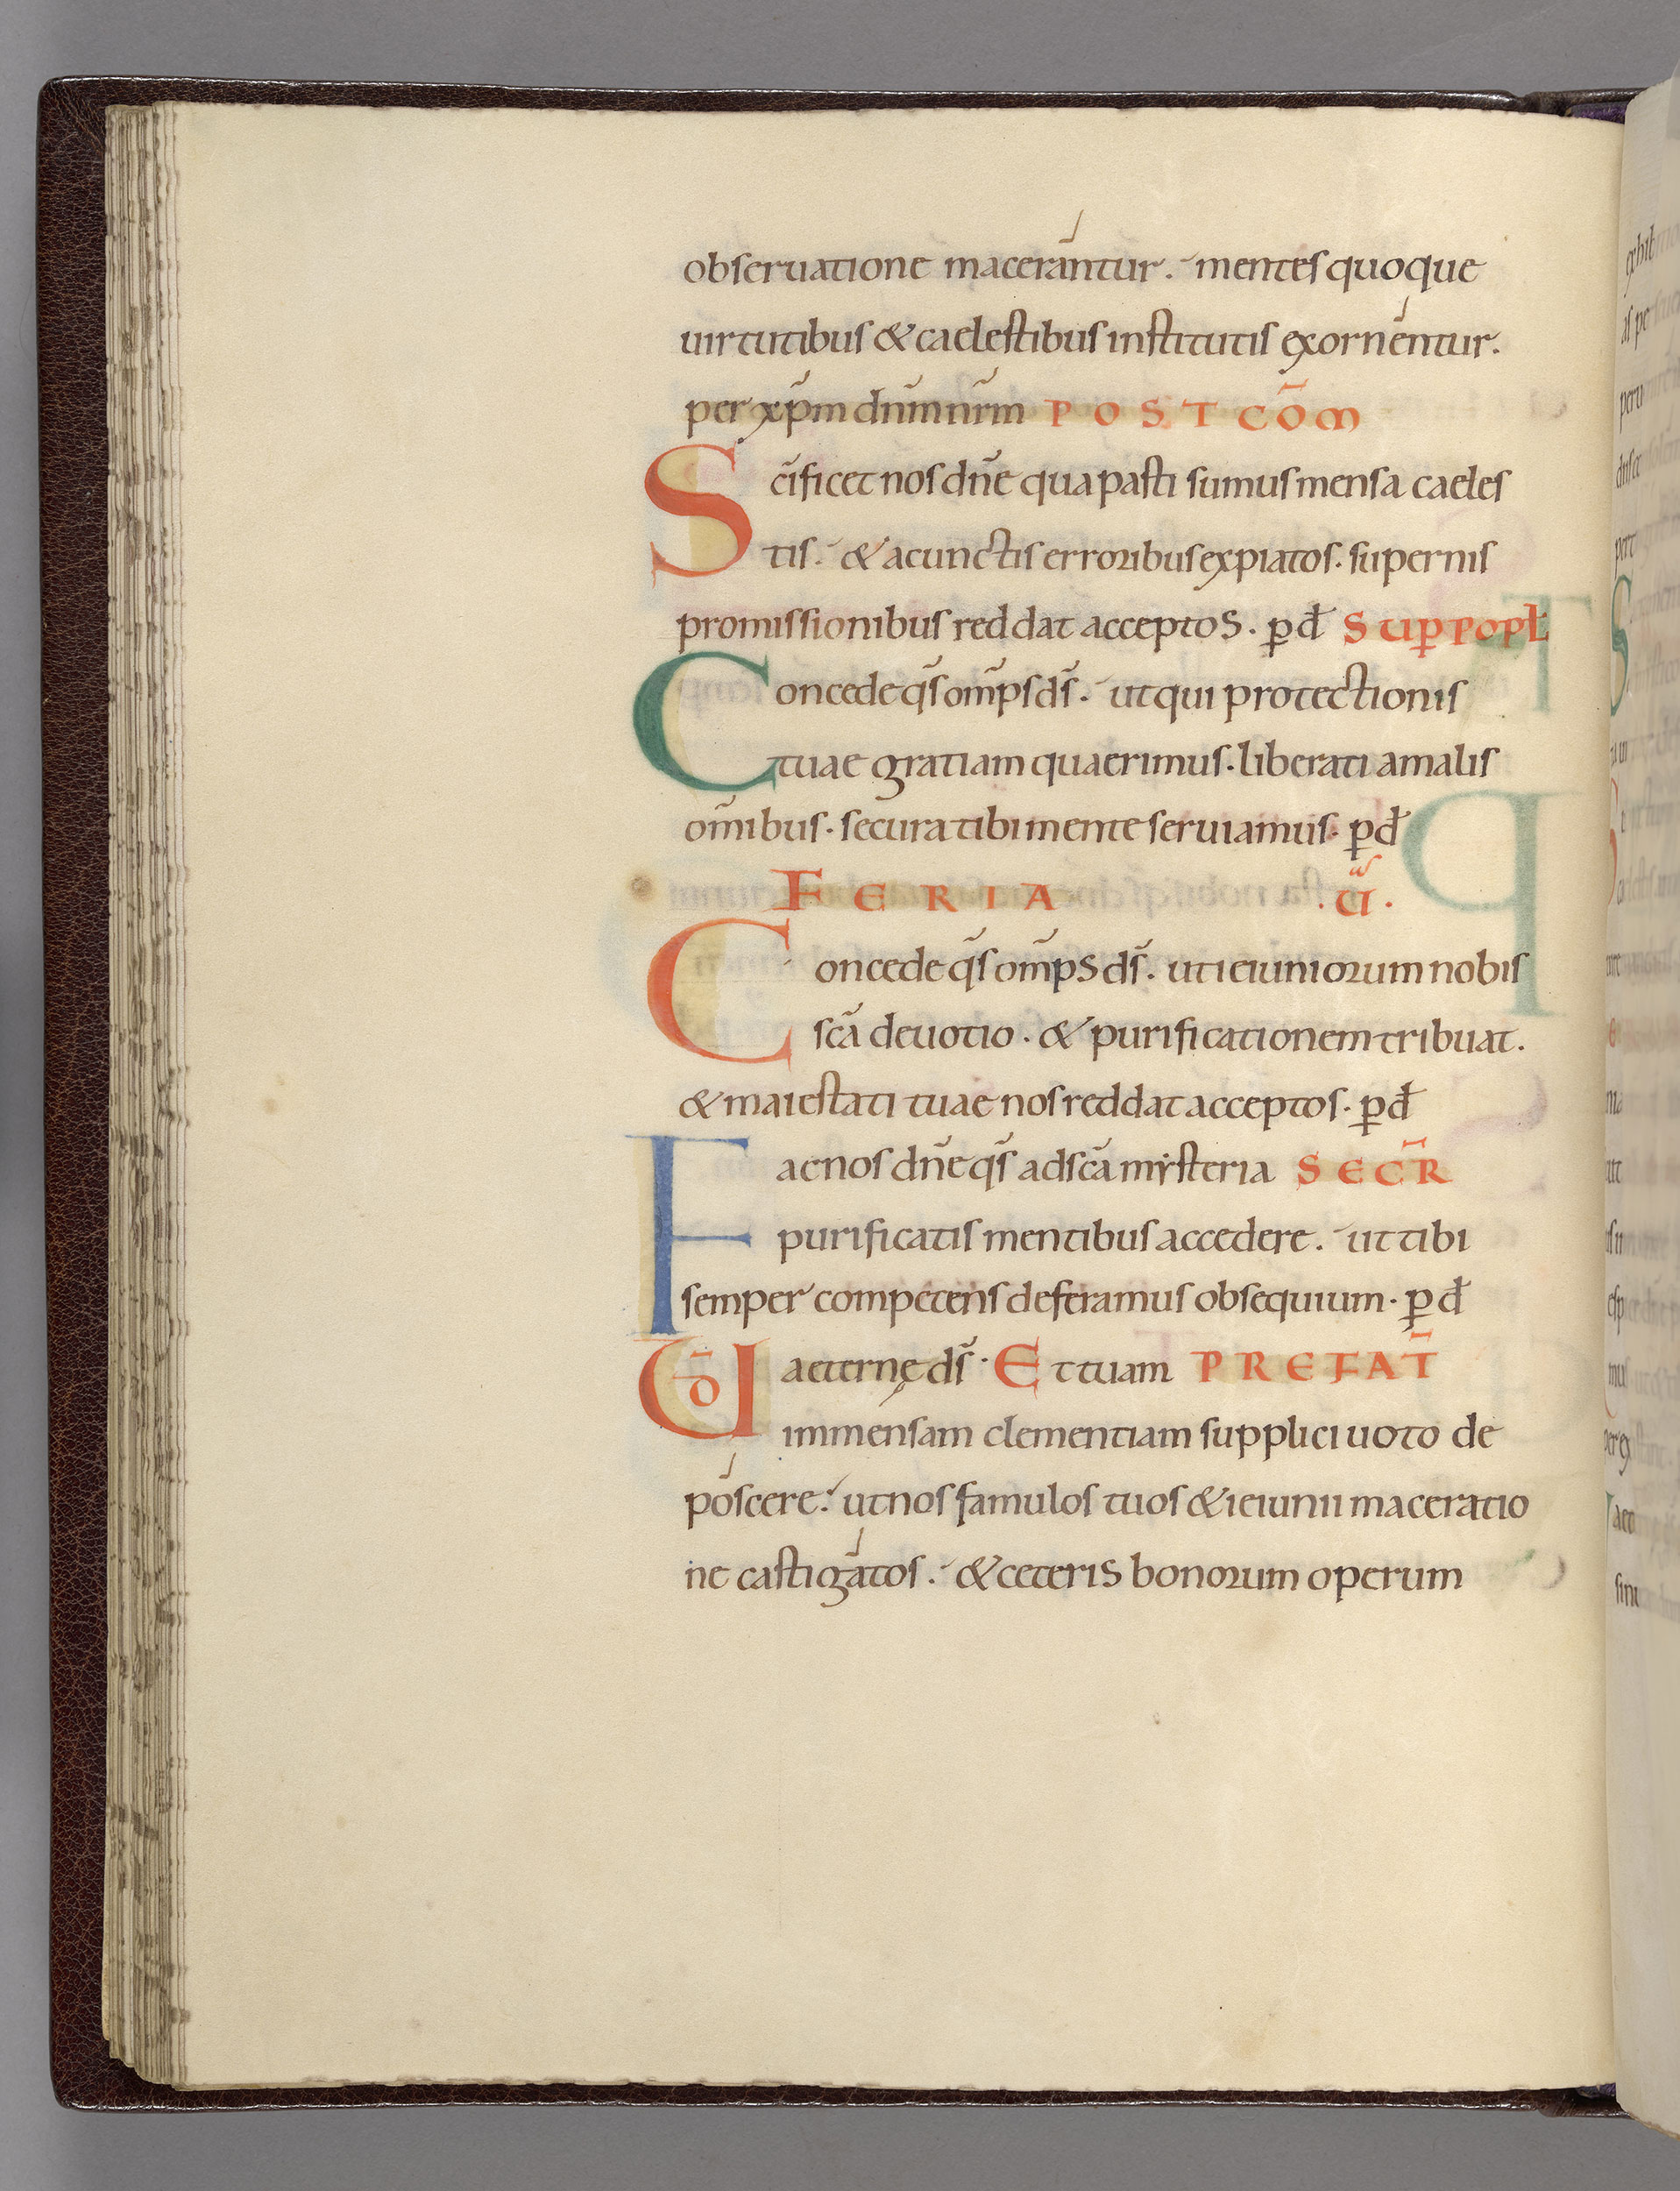 obseruatione macerantur. mentes quoque
uirtutibus & caelestibus institutis exornentur.
per xp̄m dn̄m nr̄m POST COM̄
Sc̄ificet nos dn̄e qua pasti sumus mensa caeles
tis. & a cunctis erroribus expiatos. supernis
promissionibus reddat acceptos. ꝑ d̄ SUꝑ POPŁ
Concede qs̄ om̄ps ds̄. ut qui protectionis
tuae gratiam quaerimus. liberati a malis
om̄ibus. secura tibi mente seruiamus. ꝑ d̄
FERIA .ūi.
Concede qs̄ om̄ps ds̄. ut ieiuniorum nobis
sc̄a deuotio. & purificationem tribuat.
& maiestati tuae nos reddat acceptos. ꝑ d̄
Fac nos dn̄e qs̄ ad sc̄a mẏsteria SECR̄
purificatis mentibus accedere. ut tibi
semper competens deferamus obsequium. ꝑ d̄
UD̄ aeternę ds̄. Et tuam PREFAT̄
immensam clementiam supplici uoto de
poscere. ut nos famulos tuos & ieiunii maceratio
ne castigatos. & ceteris bonorum operum